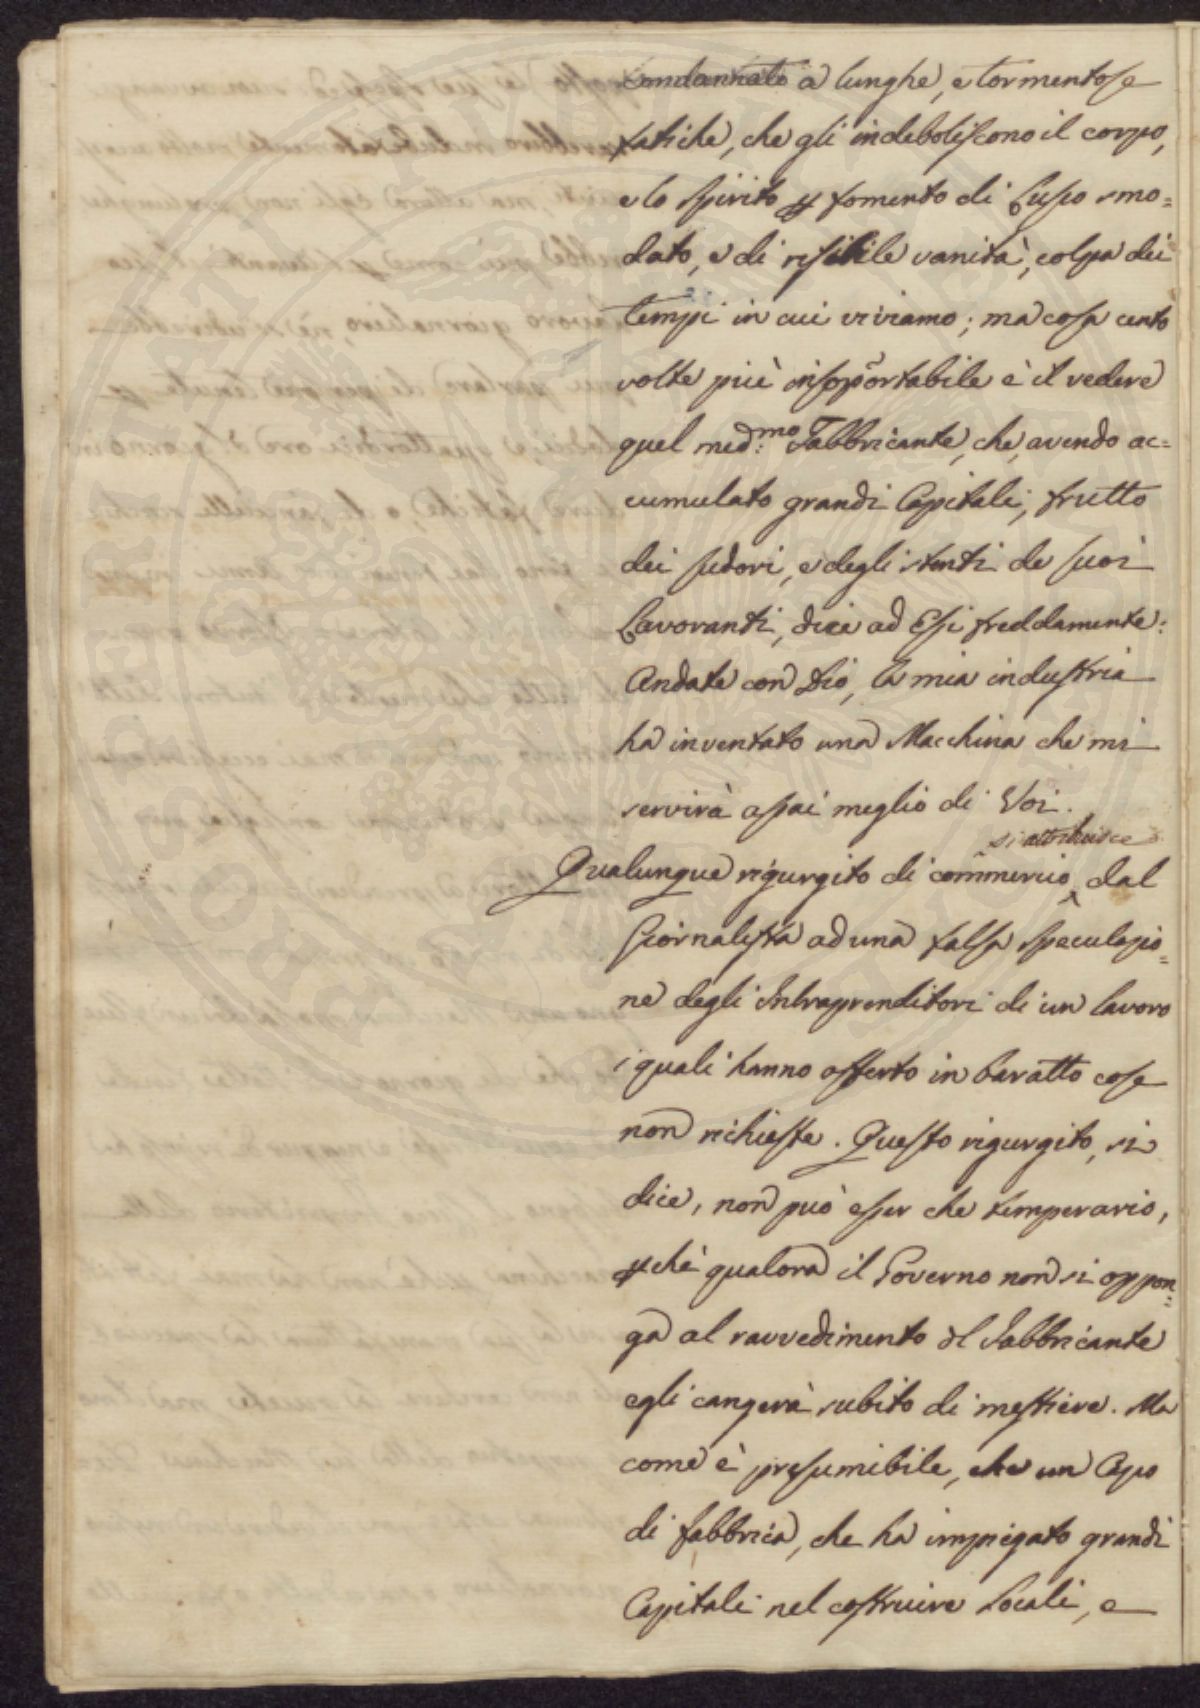 condannato a lunghe, e tormentose
fatiche, che gli indeboliscono il corpo,
e lo spirito p fomento di lusso smo=
dato, e di risibile vanità, colpa dei
tempi in cui viviamo; ma cosa cento
volte più insopportabile è il vedere
quel med:mo Fabbricante, che, avendo ac=
cumulato grandi Capitali, frutto
dei sudori, e degli stenti de suoi
Lavoranti, dice ad Essi freddamente:
Andate con Dio, la mia industria
ha inventato una Macchina che mi
servirà assai meglio di Voi.
si attribuisce
Qualunque rigurgito di commercio dal
Giornalista ad una falsa speculazio=
ne degli Intraprenditori di un lavoro
i quali hanno offerto in baratto cose
non richieste. Questo rigurgito, si
dice, non può esser che temperario,
pchè qualora il Governo non si oppon=
ga al ravvedimento dl Fabbricante
egli cangerà subito di mestiere. Ma
come è presumibile, che un Capo
di fabbrica, che ha impiegato grandi
Capitali nel costruire Locali, e